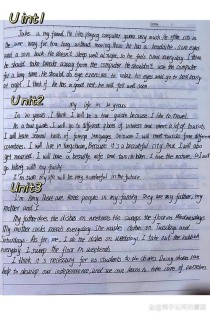 Unit1
Take is my friend. He likes playing computer games very much. He often sits in
the same way for too long without moving. Now he has a headache, sore eyes
and a sore back. He doesn't sleep well at night, so he feels tired everyday. I think
he should take breaks away from the computer. He shouldn't use the computer
for a long time. He should do eye exercises to relax his eyes and go to bed early
at night. I think if he has a good rest, he will feel well soon.
Unit2
My life in 10 years
In 10 years, I think I will be a tour guide because I like to travel.
As a tour guide, I will go to different places of interest and meet a lot of tourists.
I will learn several kinds of foreign languages, because I will meet tourists from different
countries. I will live in because it's a beautiful city. And I will also
get married. I will have a beautiful wife and two children. I love the nature. So I will
go hiking with my family.
I'm sure my life will be very wonderful in the future.
Unit3
I'm Tony. There are three people in my family. They are my father, my
mother and I.
My father does the dishes on weekends. He sweeps the floor on Wednesdays.
My mother cooks meals everyday. She washes clothes on Tuesdays and
Saturdays. As for me, I do the dishes on weekdays. I take out the rubbish
everyday. I sweep the floor on weekends.
I think it is necessary for us students to do chores. Doing chores can
help to develop our independence and we can learn to take care of ourselves.